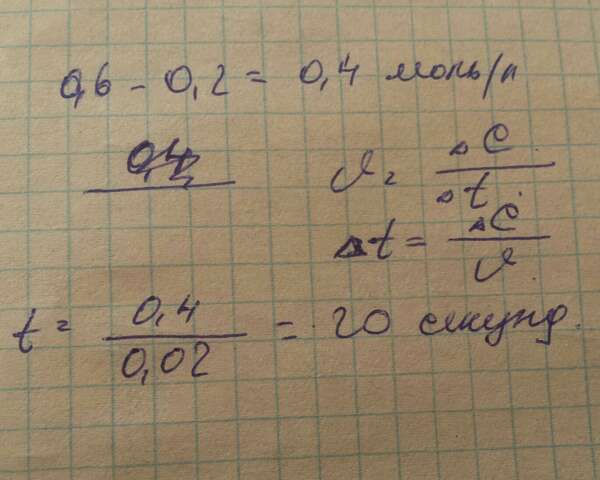 0,6 - 0,2 = 0,4 моль/л
υ = ΔC / Δt
Δt = ΔC / υ
t = 0,4 / 0,02 = 20 секунд.